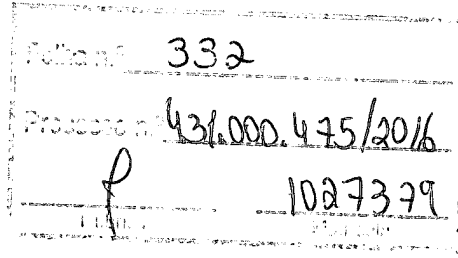 Folha n.º 332
Processo n.º 431.000.475/2016
1027379